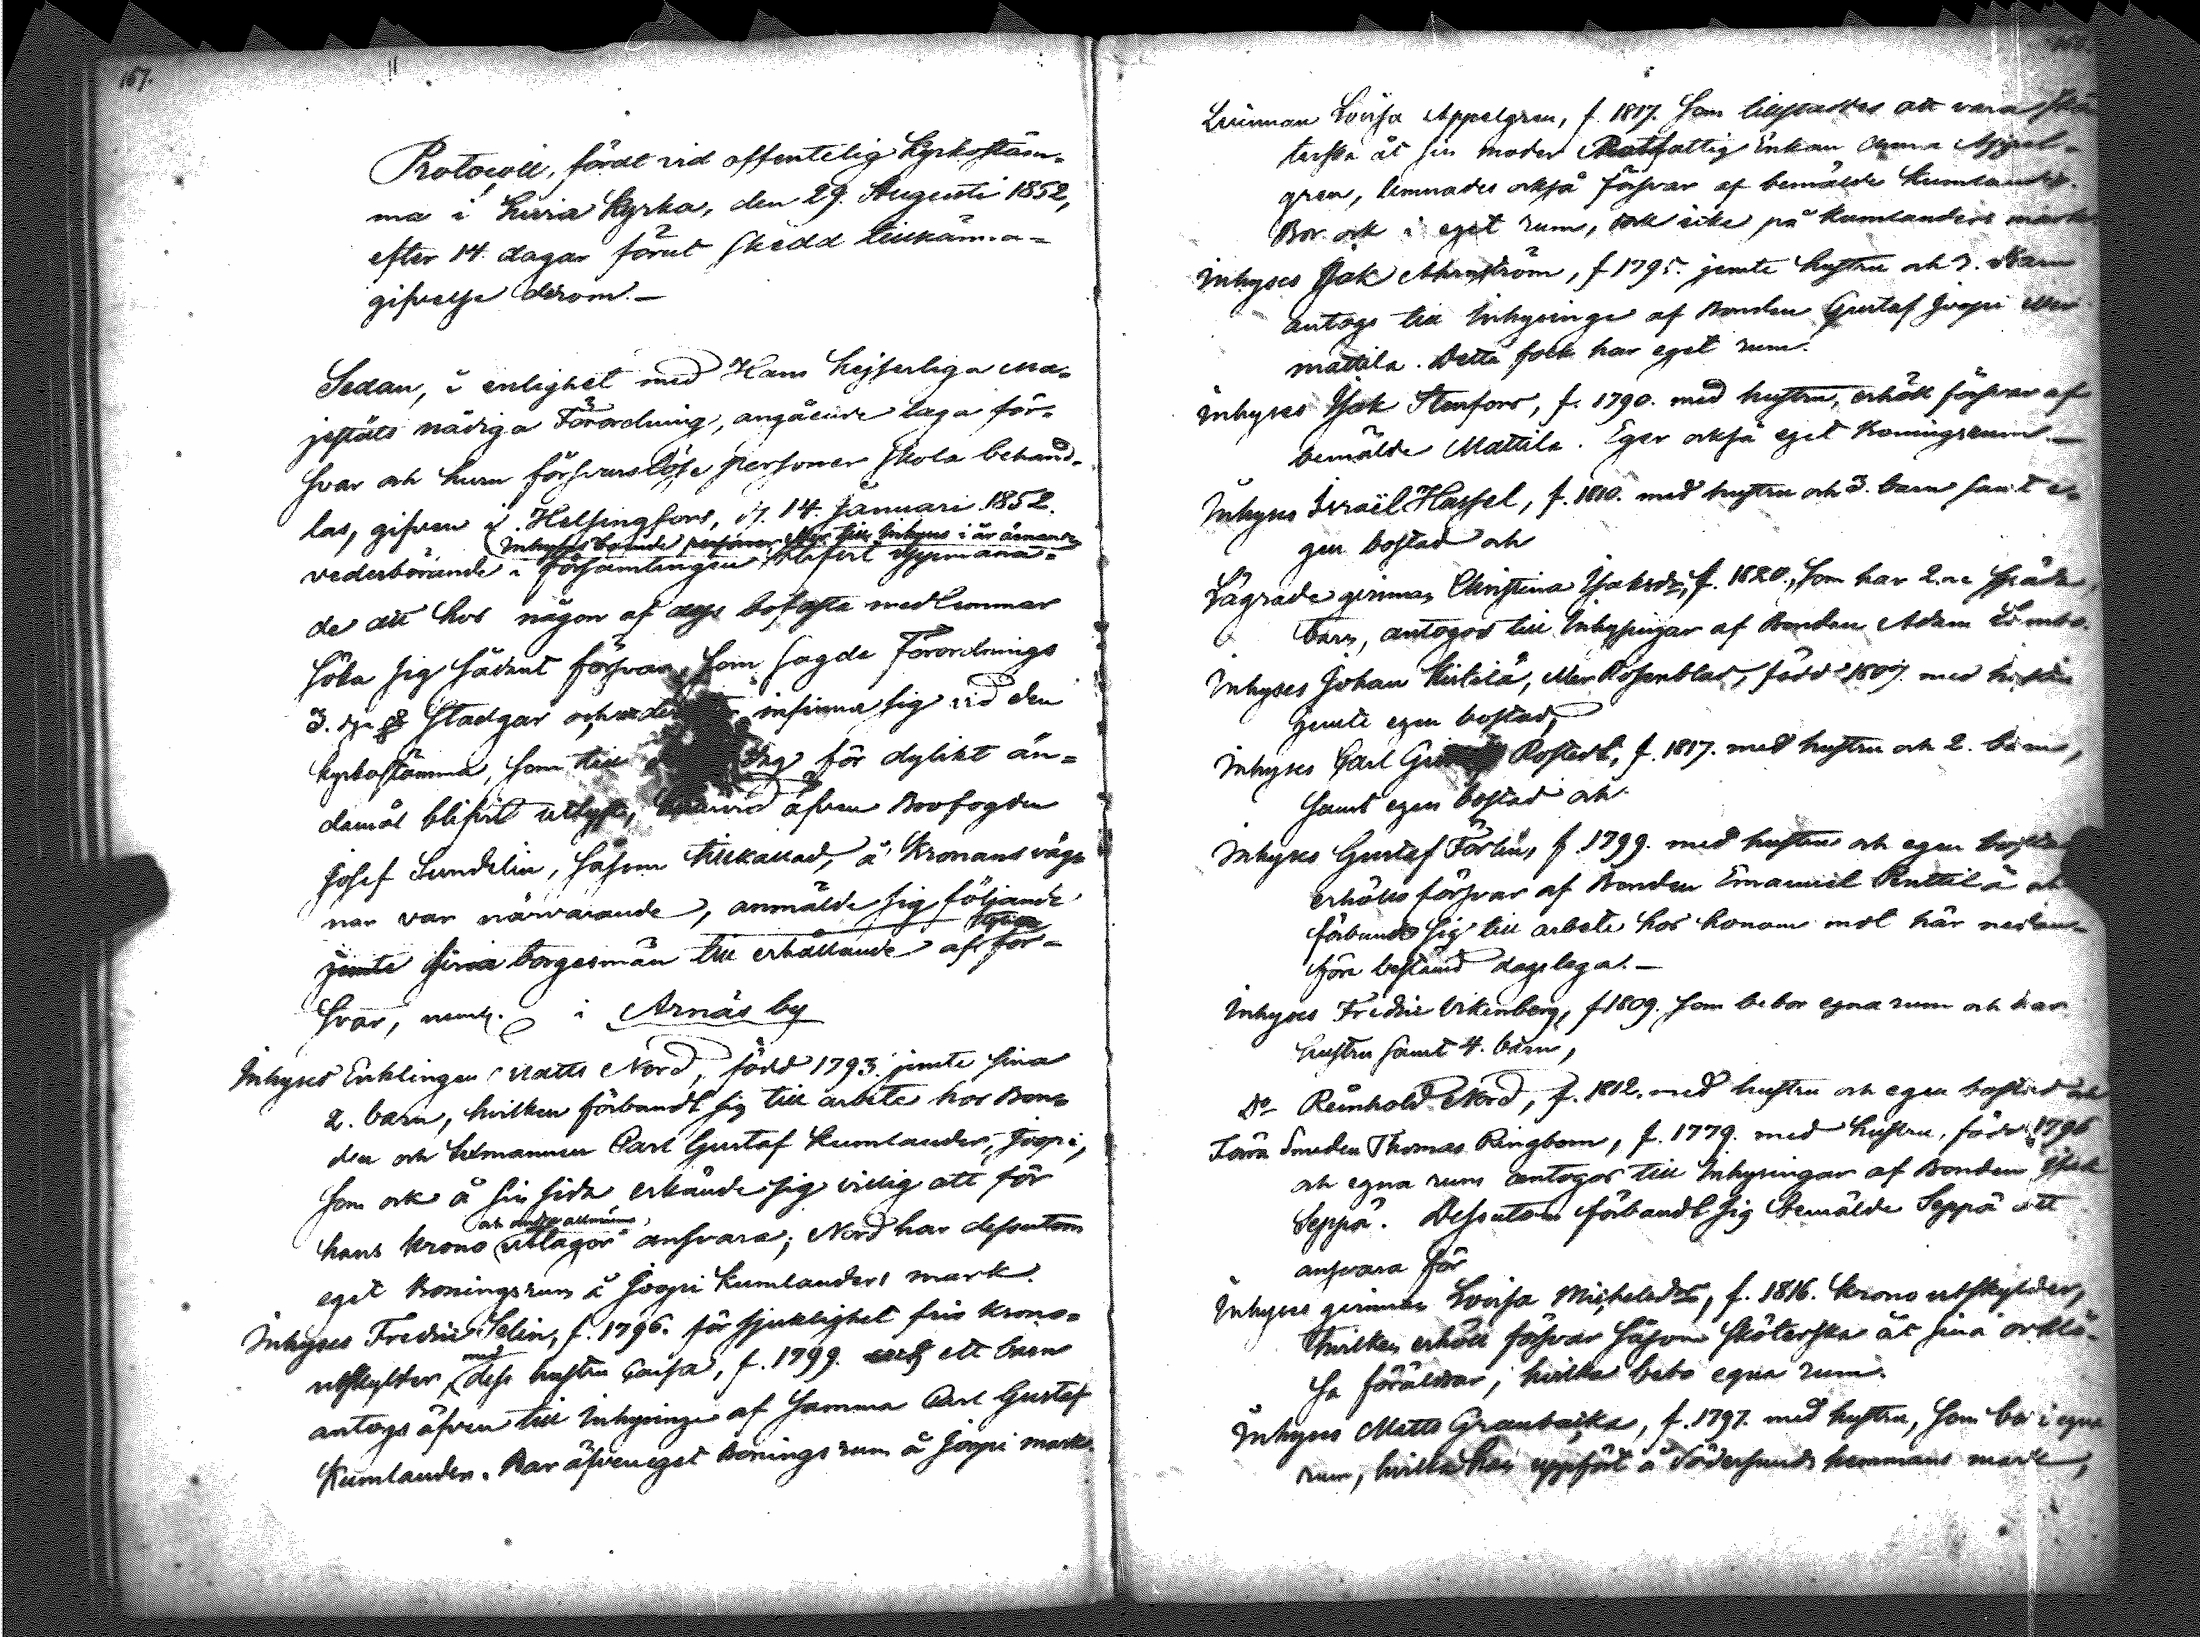 167.
Protocoll, fördt vid offentelig Kyrkostäm-
ma i Luvia Kyrka, den 29. Augusti 1852,
efter 14. dagar förut skedd tillkänna-
gifvelse derom.—
Sedan, i enlighet med Hans Kejserliga Ma-
jestäts nådiga Förordning, angående laga för-
svar och huru försvarslöse personer skola behand-
las, gifven i Helsingfors, d. 14. Januari 1852.
vederbörande i församlingen blifvit uppmana-
de att hos någon af dess bofasta medlemmar
söka sig sådant försvar, som sagde Förordnings
3.dje § stadgar och infinna sig vid den
Kyrkostämma, som till dag för dylikt än-
damål blifvit utlyst, hvarvid äfven Bofogden
Josef Sundelin, såsom tillkallad, å Kronans väg-
nar var närvarande, anmälde sig följande
jemte sina borgesmän till erhållande af för-
svar, neml. i Arnäs by
Inhyses Enklingen Matts Nord, född 1793. jemte sina
2. barn, hvilken förbandt sig till arbete hos Bon-
den och Carl Gustaf Kumlander, Joopi,
som ock å sin sida erkände sig villig att för
och andra allmänna
hans krono utlagor ansvara; Nord har dessutom
eget Boningsrum å Joopi Kumlanders mark.
Inhyses Fredric Selin, f. 1796. för sjuklighet fri krono-
utskylder, med dess hustru Caisa, f. 1799. ett barn
antogs äfven till Inhysinge af samma Carl Gustaf
Kumlander. Har äfven eget Bonings rum å Joopi mark.
Qvinnan Lovisa Appelgren, f. 1817. som tillstaddes att vara skö-
terska åt sin moder Enkan Anna Appel-
gren, lemnades också försvar af bemälde Kumlander.
Bor ock i eget rum, ock icke på Kumlanders mark
Inhyses Isak Ahrnström, f 1795. jemte hustru och 3. Barn
antogs till Inhysinge af Bonden Gustaf Joopi eller
Mattila. Detta folk har eget rum.
Inhyses Isak Stenfors, f. 1790. med hustru, erhöll försvar af
bemälde Mattila. Eger också eget Boningsrum.—
Inhyses Israël Hassel, f. 1810. med hustru och 3. barn samt e-
gen bostad och
Lägrade qvinnan Christina Isaksdr, f. 1820., som har 2.ne späda
barn, antogos till Inhysingar af Bonden Adam
Inhyses Johan Kirtilä, eller Rosenblad, född 1807. med hustru
jemte egen bostad,
Inhyses Carl Gustaf Rostedt, f. 1817. med hustru och 2. barn,
samt egen bostad och
Inhyses Gustaf Förlin, f. 1799. med hustru och egen bostad
erhöllo försvar af Bonden Emanuel Penttilä och
förbundo sig till arbete hos honom mot här nedan-
före bestämd dagslega.—
Inhyses Fredric Vikenberg, f 1809. som bebor egna rum och har
hustru samt 4. barn,
Do Reinhold Nord, f. 1812. med hustru och egen bostad och
Smeden Thomas Ringbom, f. 1779. med hustru, född 1796
och egna rum antogos till Inhysingar af Bonden Isak
Seppä. Dessutom förbandt sig bemälde Seppä att
ansvara för
Inhyses qvinnan Lovisa Michelsdr, f. 1816. krono utskylder,
hvilken erhöll försvar såsom sköterska åt sina orklö-
sa föräldrar, hvilka bebo egna rum.
Inhyses Matts Granbacka, f. 1797. med hustru, som bor i egna
rum, hvilka han uppfört å Södersunds hemmans mark,